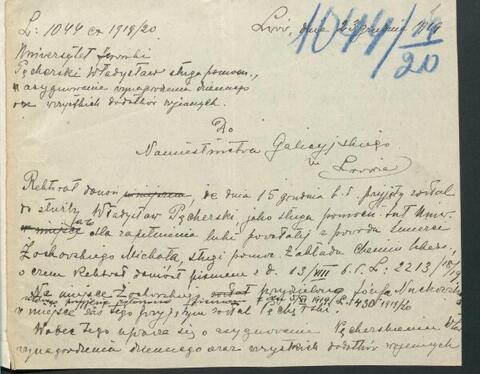 L: 1044 ex 1919/20
Lwów, dnia 23 grudnia
1044/20
Uniwersytet lwowski
Pęcherski Władysław sługa pomocn.,
o asygnowanie wynagrodzenia dziennego
oraz wszystkich dodatków wojennych.
Do
Namiestnictwa Galicyjskiego
we Lwowie
Rektorat donosi że dnia 15 grudnia b.r. przyjęty został
do służby Władysław Pęcherski, jako sługa pomocn. tut. Uniw.
dla zapełnienia luki powstałej z powodu śmierci
Michała, sługi pomoc. Zakładu Chemii lekar.,
o czem Rektorat doniósł pismem z d. 13/VIII b.r. L: 2213/
Na miejsce został przydzielony Józef
L: 430 1919/20
w miejsce zaś tego przyjętym został Pęcherski.
Wobec tego uprasza się o asygnowanie Pęcherskiemu
wynagrodzenia dziennego oraz wszystkich dodatków wojennych